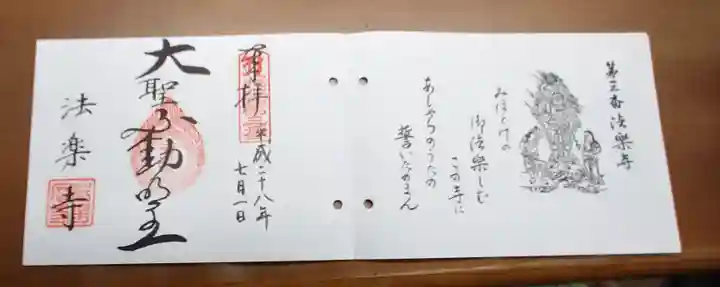 第三番法樂寺
みほとけの
御法樂しむ
この寺に
あしゃらのうたの
誓いたのまん
奉拝
平成二十八年
七月一日
大聖不動明王
法楽寺